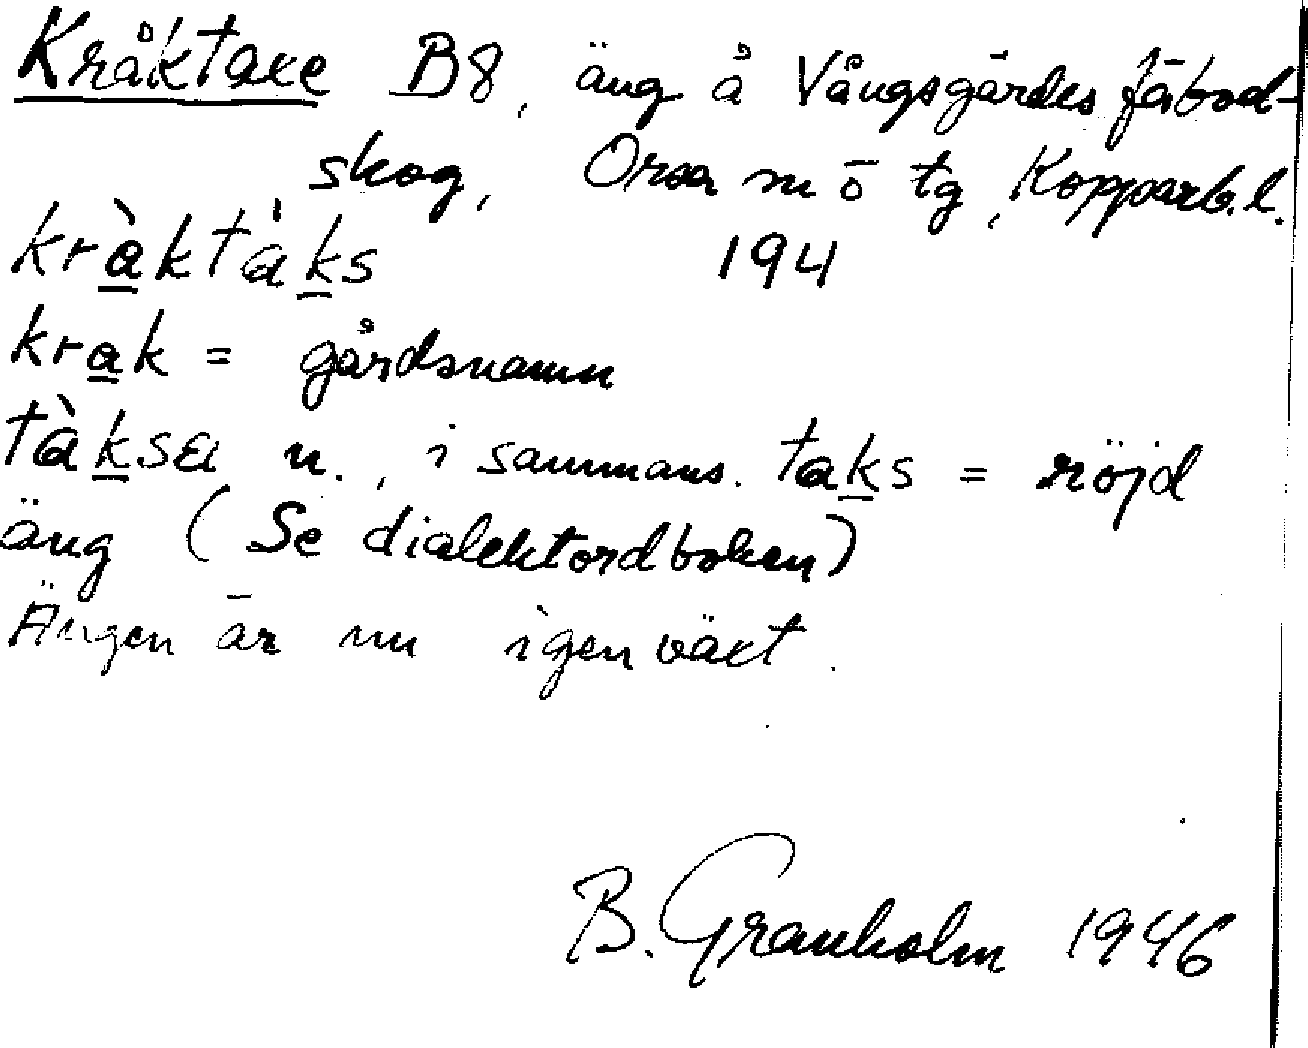 Kråktaxe B8, äng å Vångsgärdes fäbod-
skog, Orsa m ō tg, Kopparb.l.
kràktàks 194
krak = gårdsnamn
tàksa n., i sammans. taks = röjd
äng (Se dialektordboken)
Ängen är nu igenväxt.
B. Granholm 1946